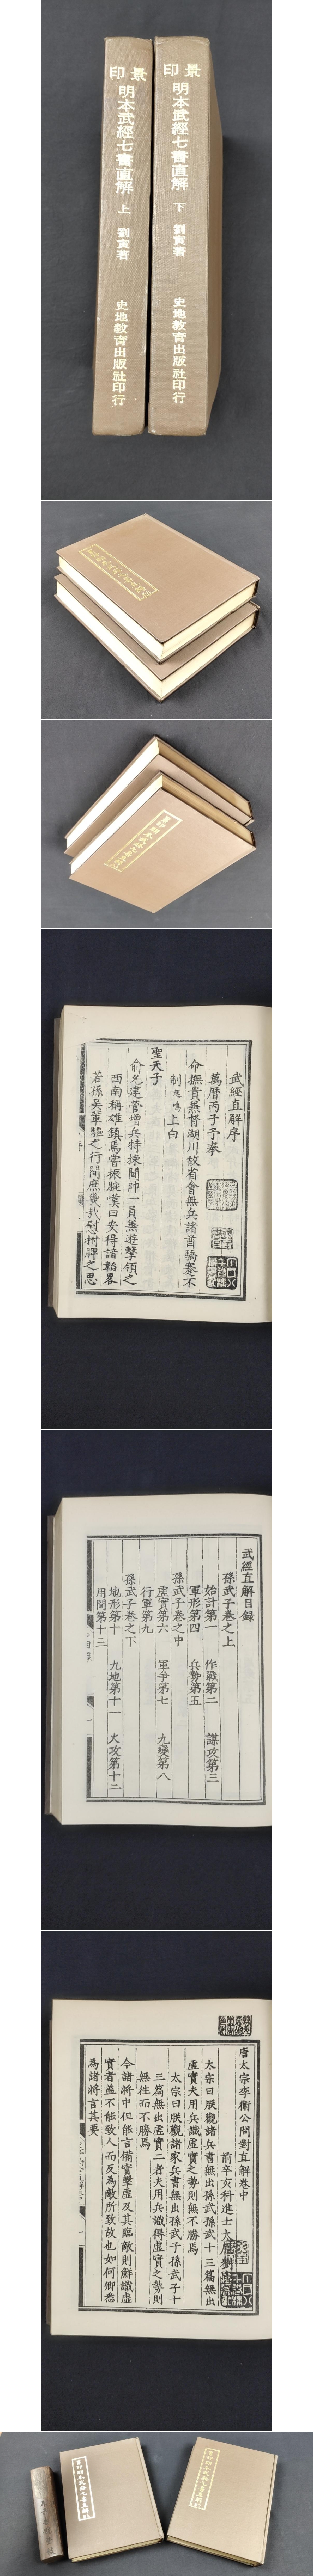 景印
明本武經七書直解 上 劉寅著
史地教育出版社印行
景印
明本武經七書直解 下 劉寅著
史地教育出版社印行
武經直解序
萬曆丙子予奉
命撫貴無督湖川故省會無兵諸酋驕蹇不
制
上白
聖天子
俞允建營增兵特揀閫帥一員無遊擊領之
西南稱雄鎮焉嘗振腕嘆曰安得諳韜畧
若孫吳輩驅之行間庶幾少慰拊髀之思
武經直解目錄
孫武子卷之上
始計第一 作戰第二 謀攻第三
軍形第四 兵勢第五
孫武子卷之中
虛實第六 軍爭第七 九變第八
行軍第九
孫武子卷之下
地形第十 九地第十一 火攻第十二
用間第十三
唐太宗李衛公問對直解卷中
前辛亥科進士太原劉寅解
太宗曰朕觀諸兵書無出孫武孫武十三篇無出
虛實夫用兵識虛實之勢則無不勝焉
太宗曰朕觀諸家兵書無出孫武子孫武子十
三篇無出虛實二者夫用兵識得虛實之勢則
無往而不勝焉
今諸將中但能言備實擊虛及其臨敵則鮮識虛
實者蓋不能致人而反為敵所致故也如何卿悉
為諸將言其要
景印明本武經七書直解
景印明本武經七書直解